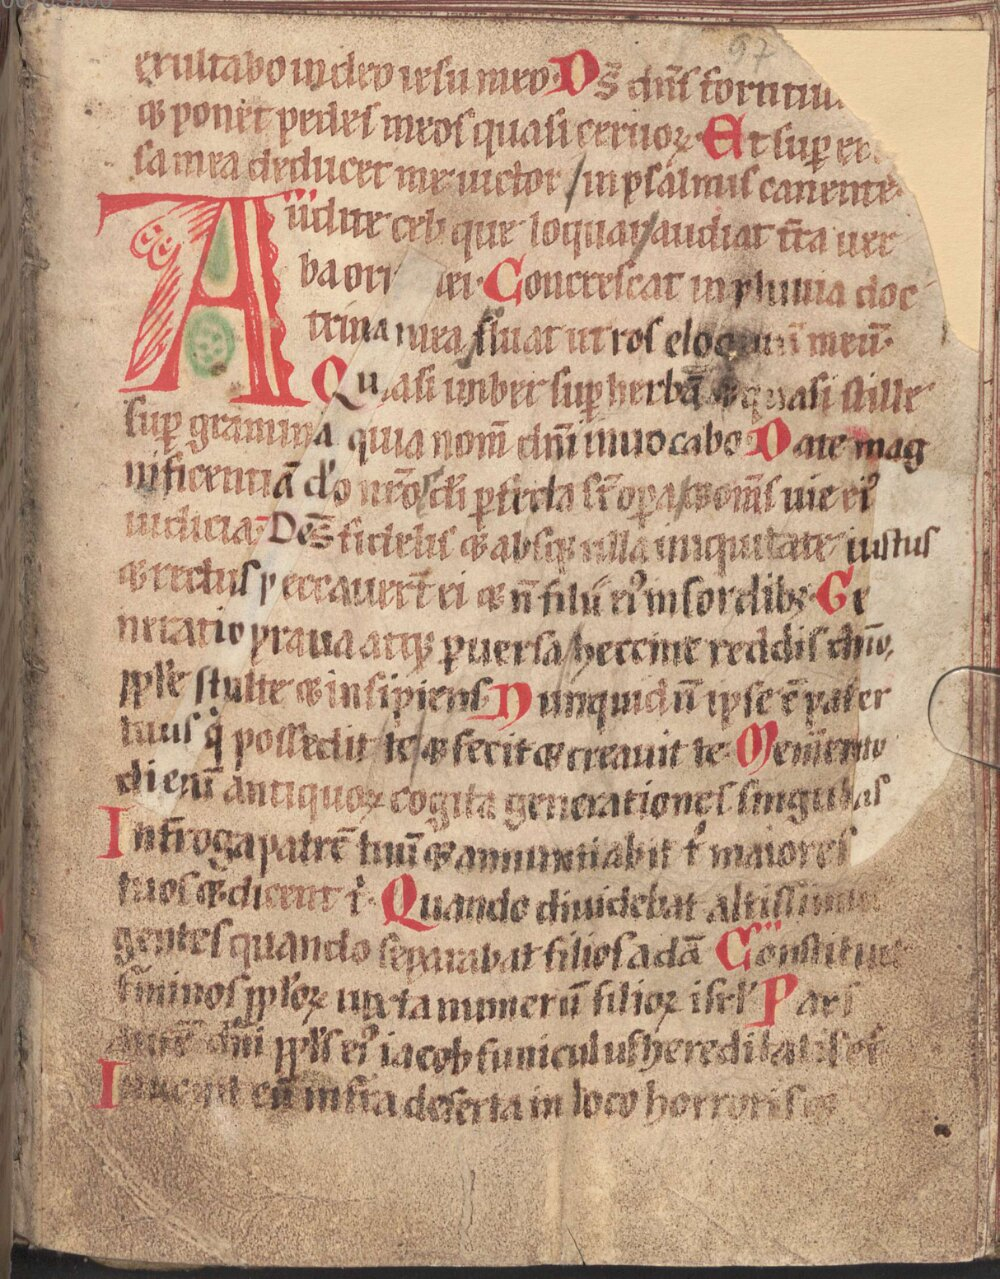 97
exultabo in deo iesu meo· Ds̄ dn̄s fortitu
⁊ ponet pedes meos quasi ceruoꝝ· Et sup̄ ex
sa mea deducet me uictor / in psalmis canente·
Audite celi que loquar / audiat t̄ra uer
ba oris mei· Concrescat in pluuia doc
trina mea / fluat ut ros eloquiū meū·
Quasi imber sup̄ herbā ⁊ quasi stille
sup̄ gramina quia nom̄ dn̄i inuocabo· Date mag
nificentiā do̅ nr̄o / di p̄fecta s̄t opa / ⁊ om̄s uie ei᾽
iudicia· Deꝰs̄ fidelis ⁊ absq̨ ulla iniquitate iustus
⁊ rectus peccauer̄t ei ⁊ n̄ filii ei᾽ in sordibꝫ· Ge
neratio praua atq̨ ꝑuersa / heccine reddis dn̄o,
pple̅ stulte ⁊ insipiens· Nunquid n̄ ipse ē pater
tuus q̇ possedit te ⁊ fecit ⁊ creauit te· Memento
dierū antiquoꝝ cogita generationes singulas
Int̄roga patrē tuū ⁊ annuntiabit t᾽ maiores
tuos ⁊ dicent t᾽· Quando diuidebat altissimus
gentes quando separabat filios adā· Constituit
t̄minos pplo̅ꝝ iuxta numerū filioꝝ isrl̄· Pars
autē dn̄i ppls̄ ei᾽ iacob funiculus hereditatis ei᾽
Inuenit eū in t̄ra deserta in loco horroris ⁊